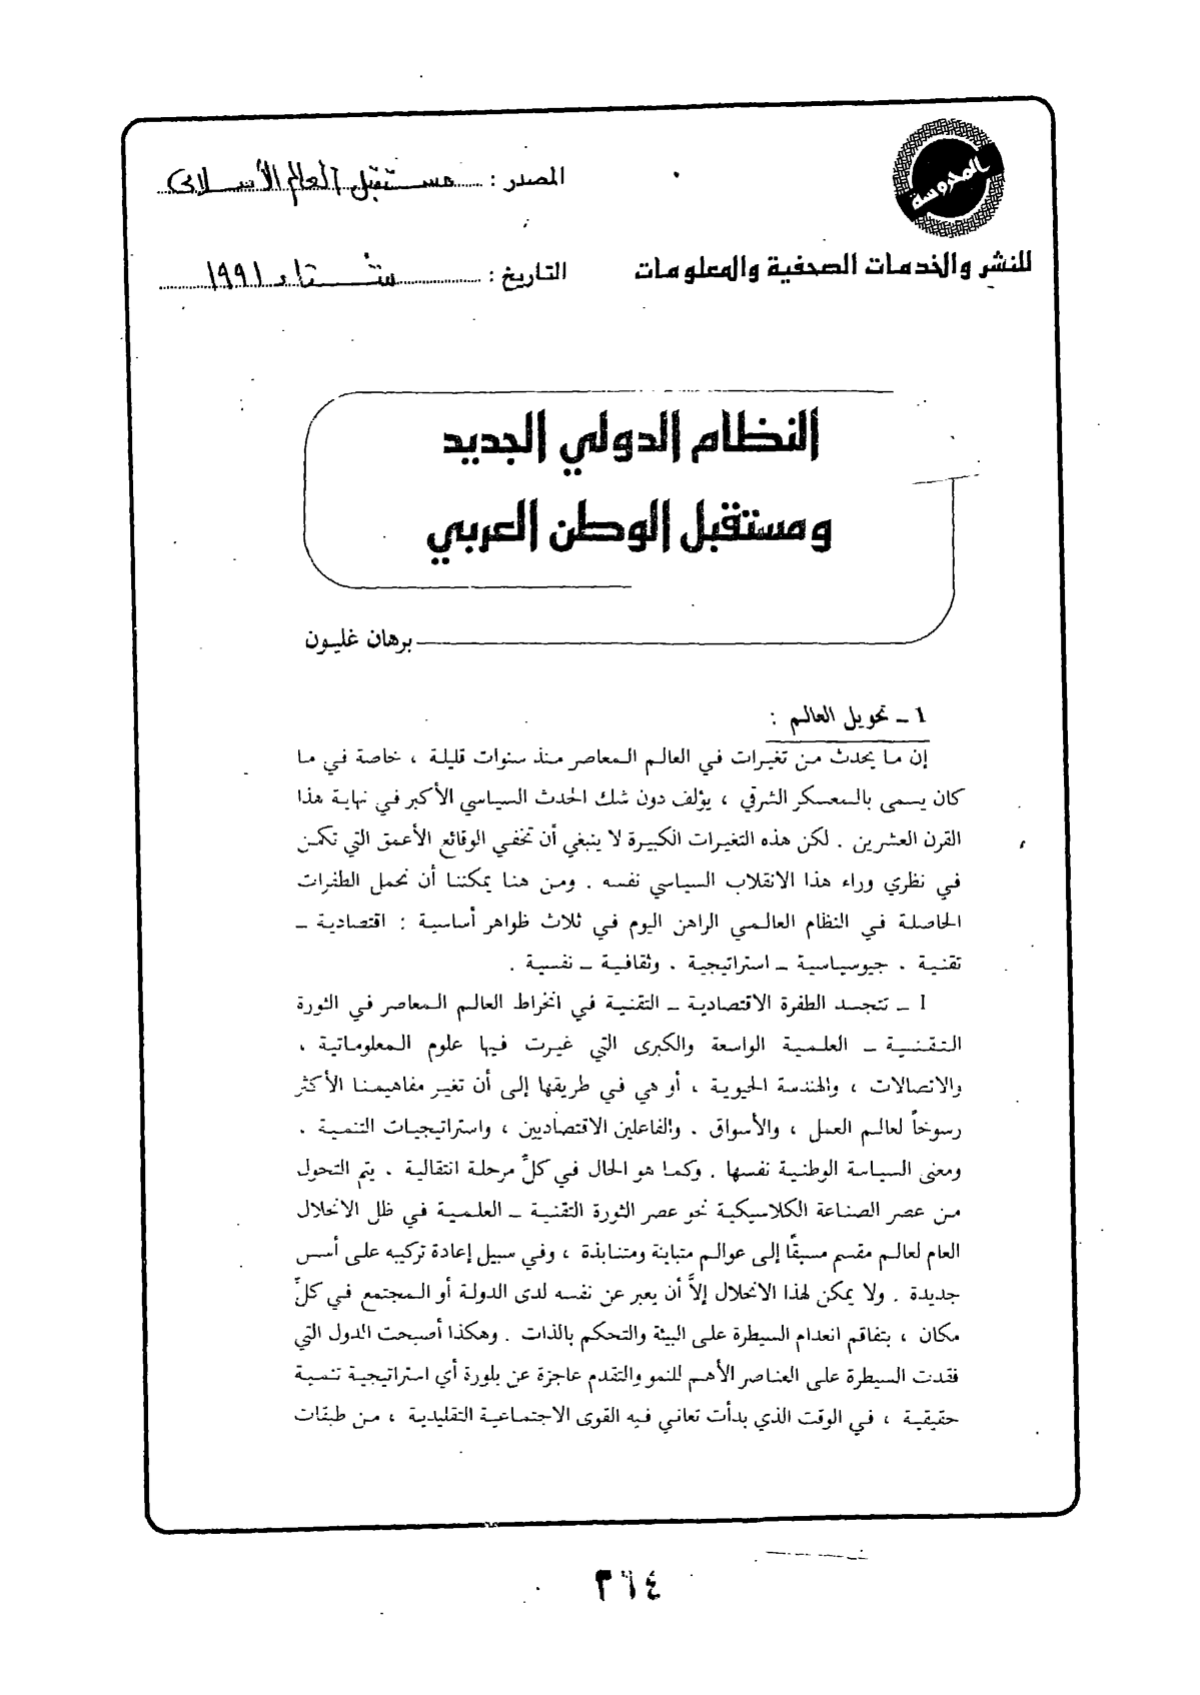 المحروسة
للنشر والخدمات الصحفية والمعلومات
المصدر : مستقبل العالم الأسلامى
التاريخ : شتاء ١٩٩١
النظام الدولي الجديد
ومستقبل الوطن العربي
برهان غليون
1 ـ تحويل العالم :
إن ما يحدث من تغيرات في العالم المعاصر منذ سنوات قليلة ، خاصة في ما
كان يسمى بالمعسكر الشرقي ، يؤلف دون شك الحدث السياسي الأكبر في نهاية هذا
القرن العشرين . لكن هذه التغيرات الكبيرة لا ينبغي أن تخفي الوقائع الأعمق التي تكمن
في نظري وراء هذا الانقلاب السياسي نفسه . ومن هنا يمكننا أن نحمل الطفرات
الحاصلة في النظام العالمي الراهن اليوم في ثلاث ظواهر أساسية : اقتصادية ـ
تقنية . جيوسياسية ـ استراتيجية . وثقافية ـ نفسية .
I ـ تتجسد الطفرة الاقتصادية ـ التقنية في انخراط العالم المعاصر في الثورة
التقنية ـ العلمية الواسعة والكبرى التي غيرت فيها علوم المعلوماتية ،
والاتصالات ، والهندسة الحيوية ، أو هي في طريقها إلى أن تغير مفاهيمنا الأكثر
رسوخاً لعالم العمل ، والأسواق . والفاعلين الاقتصاديين ، واستراتيجيات التنمية .
ومعنى السياسة الوطنية نفسها . وكما هو الحال في كلِّ مرحلة انتقالية . يتم التحول
من عصر الصناعة الكلاسيكية نحو عصر الثورة التقنية ـ العلمية في ظل الانحلال
العام لعالم مقسم مسبقًا إلى عوالم متباينة ومتنابذة ، وفي سبيل إعادة تركيبه على أسس
جديدة . ولا يمكن لهذا الانحلال إلاَّ أن يعبر عن نفسه لدى الدولة أو المجتمع في كلِّ
مكان ، بتفاقم انعدام السيطرة على البيئة والتحكم بالذات . وهكذا أصبحت الدول التي
فقدت السيطرة على العناصر الأهم للنمو والتقدم عاجزة عن بلورة أي استراتيجية تنمية
حقيقية ، في الوقت الذي بدأت تعاني فيه القوى الاجتماعية التقليدية ، من طبقات
٣٦٤